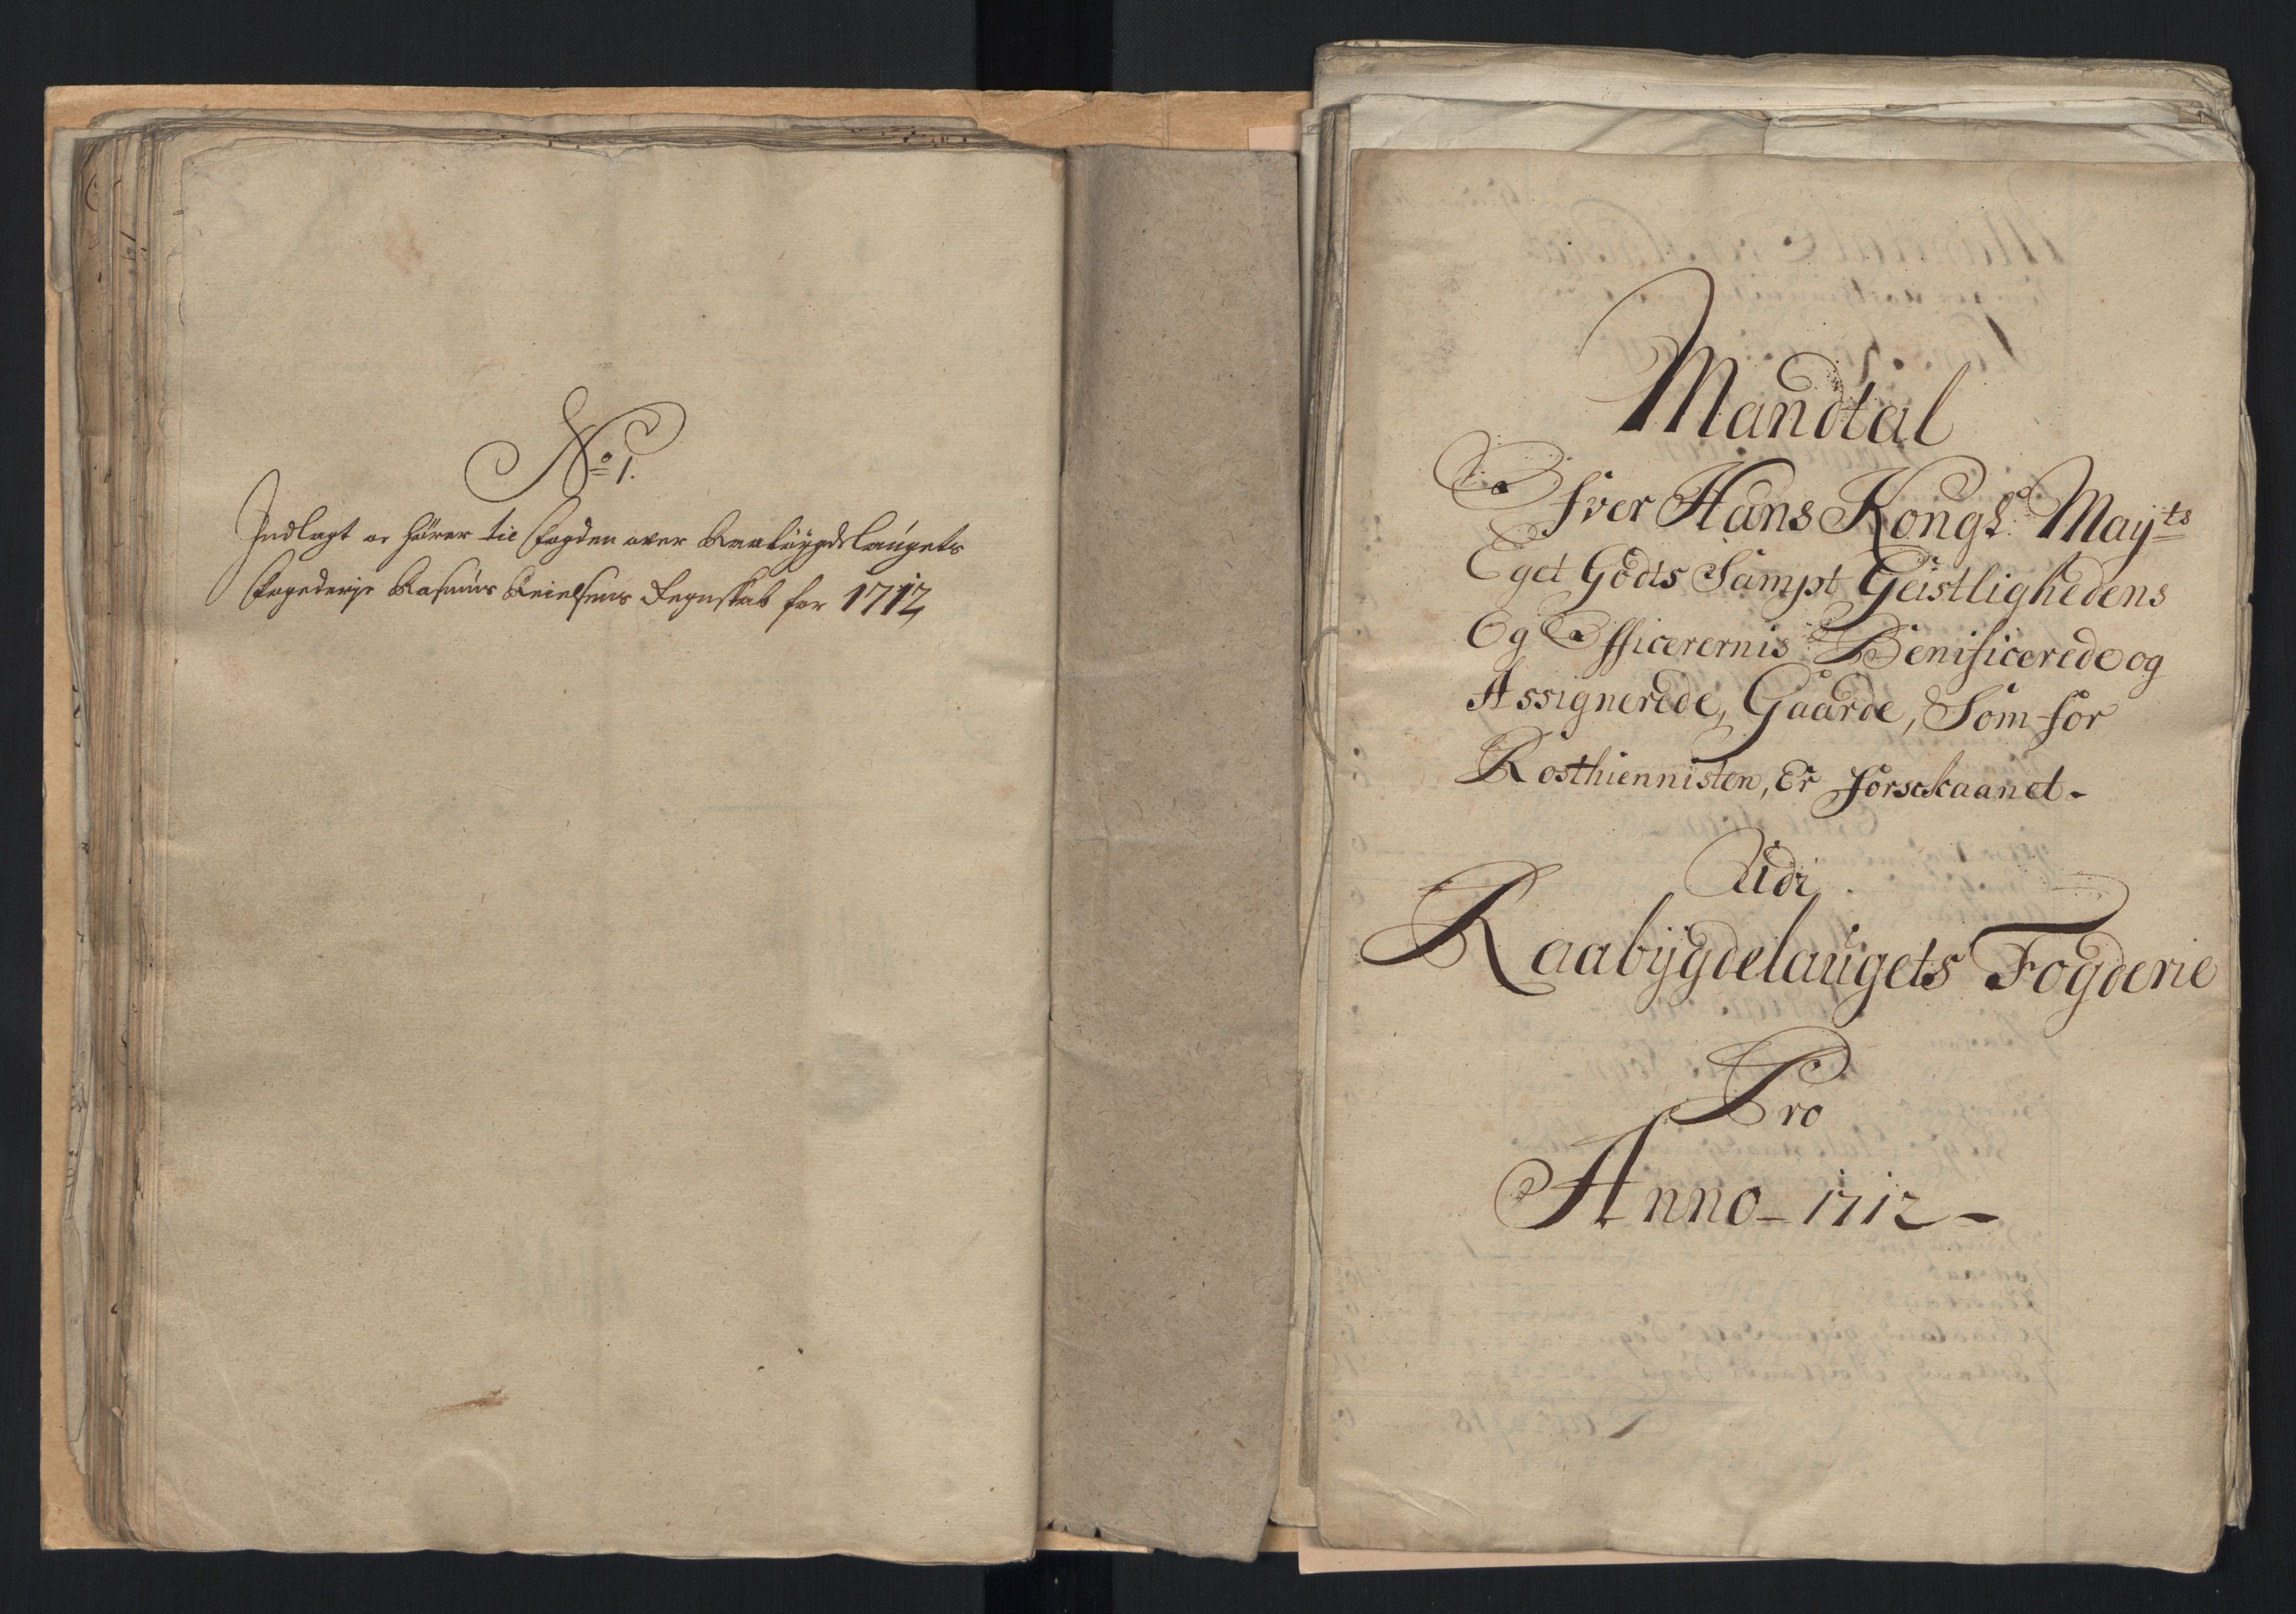 No 1.
Indlagt oc hører til fogden over Raabøygdelaugets
fogederje Rasmus Keielsens Regnskab for 1712
Mandtal
Ofver Hans Kongl: Mayts
Eget Godts Sampt Geistlighedens
Og Officerernis Benificerede og
Assignerede, Gaarde, Som for
Rosthiennisten, Er forsckaanet-
Udi
Raabÿgdelaugets Fogderie
Pro
Anno - 1712 -